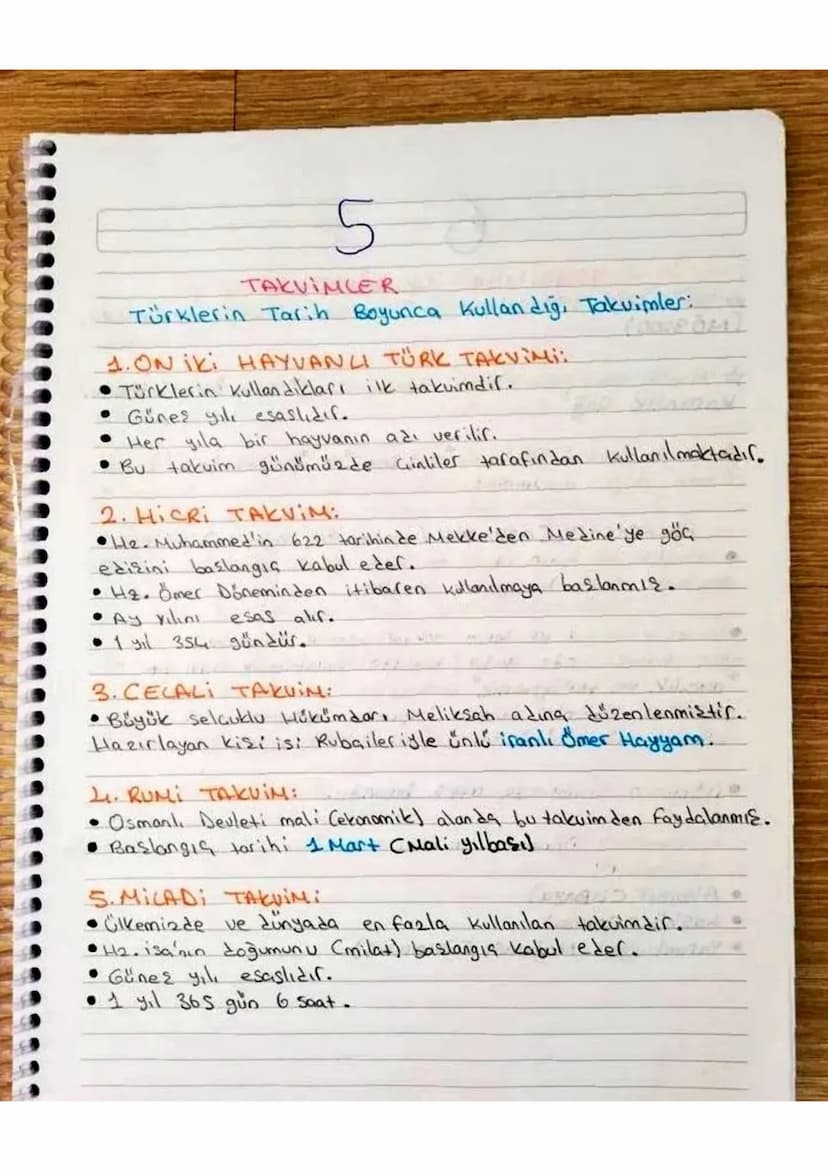 5
TAKVİMLER
Türklerin Tarih Boyunca Kullandığı Takvimler:
1. ON İKİ HAYVANLI TÜRK TAKVİMİ:
• Türklerin kullandıkları ilk takvimdir.
• Güneş yılı esaslıdır.
• Her yıla bir hayvanın adı verilir.
• Bu takvim günümüzde Çinliler tarafından kullanılmaktadır.
2. HİCRİ TAKVİM:
• Hz. Muhammed'in 622 tarihinde Mekke'den Medine'ye göç
edişini başlangıç kabul eder.
• Hz. Ömer Döneminden itibaren kullanılmaya başlanmış.
• Ay yılını esas alır.
• 1 yıl 354 gündür.
3. CELALİ TAKVİM:
• Büyük Selçuklu Hükümdarı Melikşah adına düzenlenmiştir.
Hazırlayan kişi ise Rubaileriyle ünlü iranlı Ömer Hayyam.
4. RUMİ TAKVİM:
• Osmanlı Devleti mali (ekonomik) alanda bu takvimden faydalanmış.
• Başlangıç tarihi 1 Mart (Mali yılbaşı)
5. MİLADİ TAKVİM:
• Ülkemizde ve dünyada en fazla kullanılan takvimdir.
• Hz. isa'nın doğumunu (milat) başlangıç kabul eder.
• Güneş yılı esaslıdır.
• 1 yıl 365 gün 6 saat.